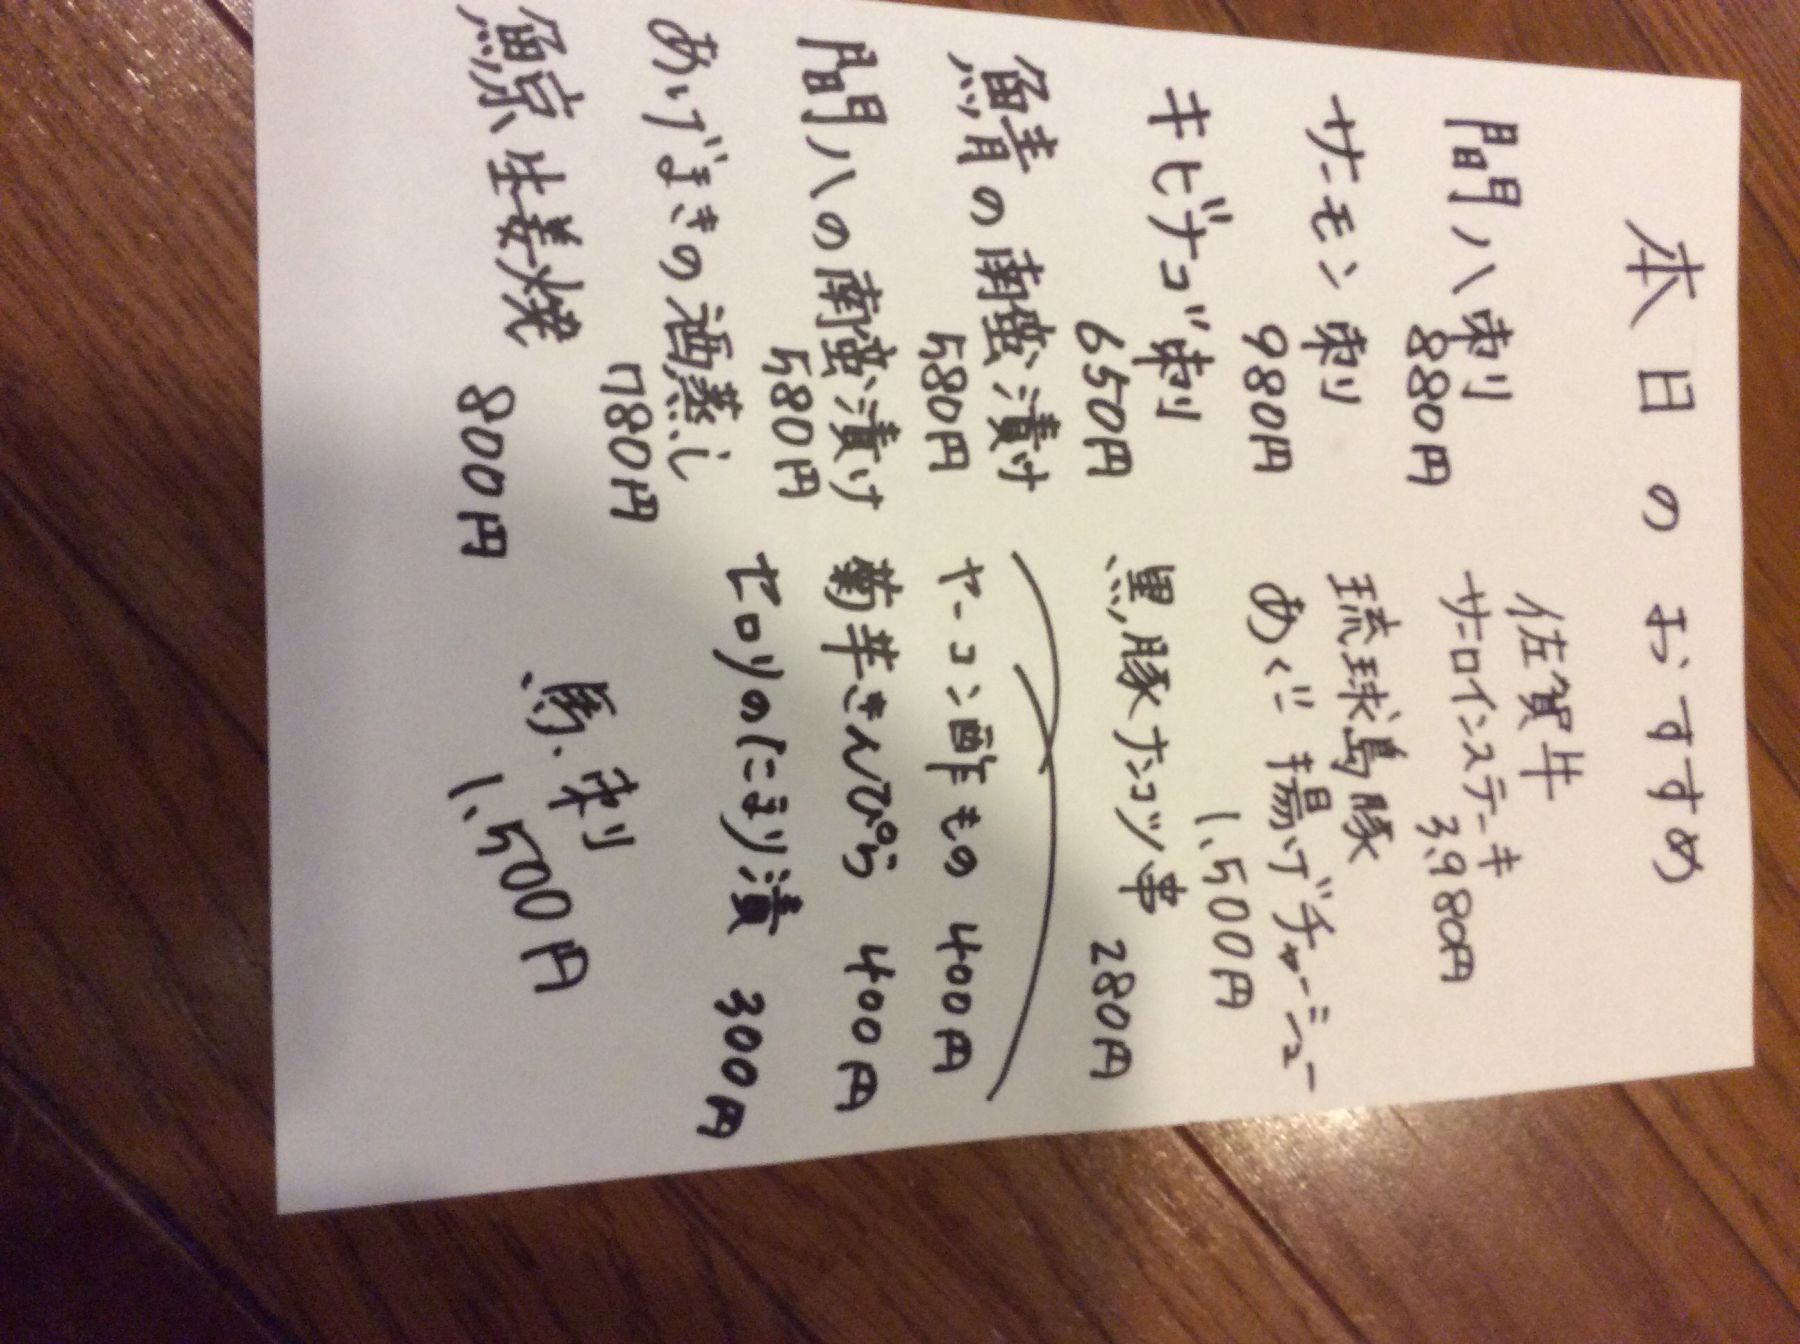 本日のおすすめ
間八刺
880円
サーモン刺
980円
キビナゴ刺
650円
鯖の南蛮漬け
580円
間八の南蛮漬け
580円
あげまきの酒蒸し
780円
鯨生姜焼
800円
佐賀牛
サーロインステーキ
3,980円
琉球島豚
あぐー揚げチャーシュー
1,500円
黒豚ナンコツ串 280円
ヤーコン酢もの 400円
菊芋きんぴら 400円
セロリのたまり漬 300円
馬刺
1,500円